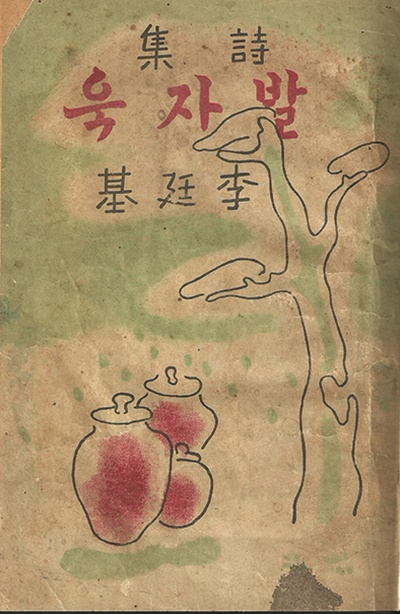 詩集
발자욱
李廷基